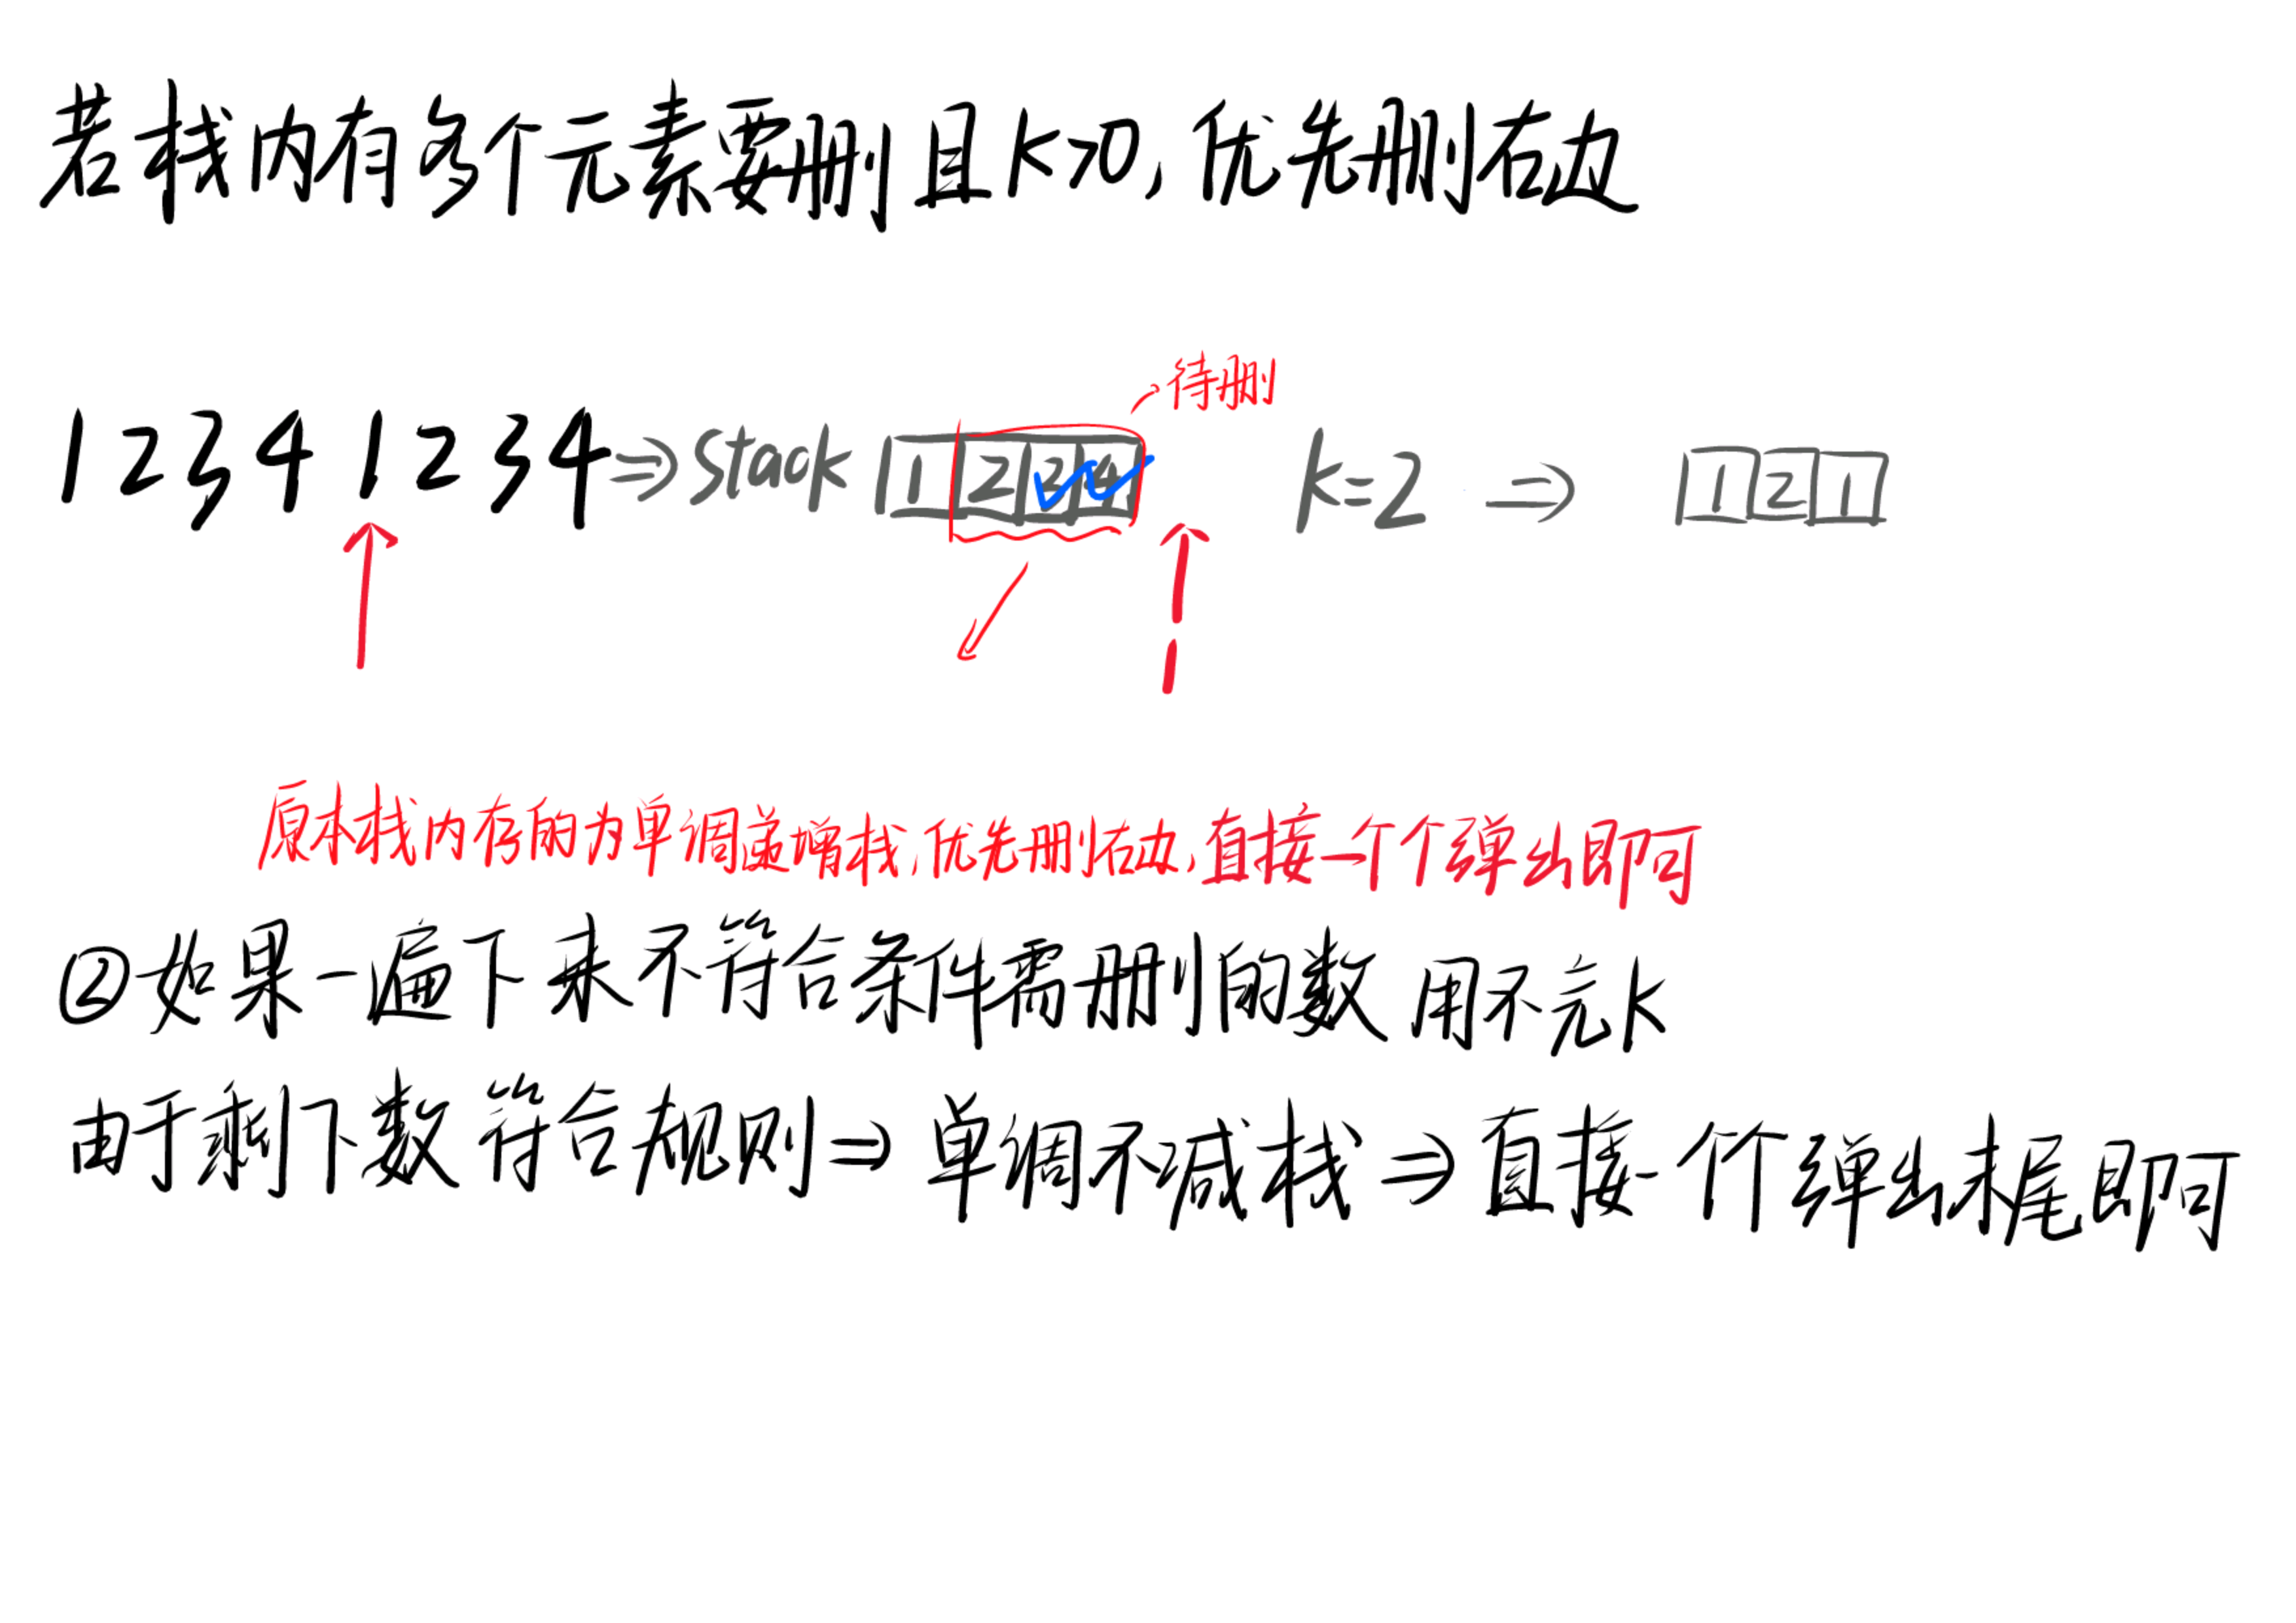 若栈内有多个元素要删且k>0,优先删右边
待删
12341234⇒Stack 1 2 3 4 k=2 ⇒ 1 2 1
1
原本栈内存的为单调递增栈,优先删右边,直接一个个弹出即可
②如果一遍下来不符合条件需删的数用不完k
由于剩下数符合规则⇒单调不减栈⇒直接一个个弹出末尾即可